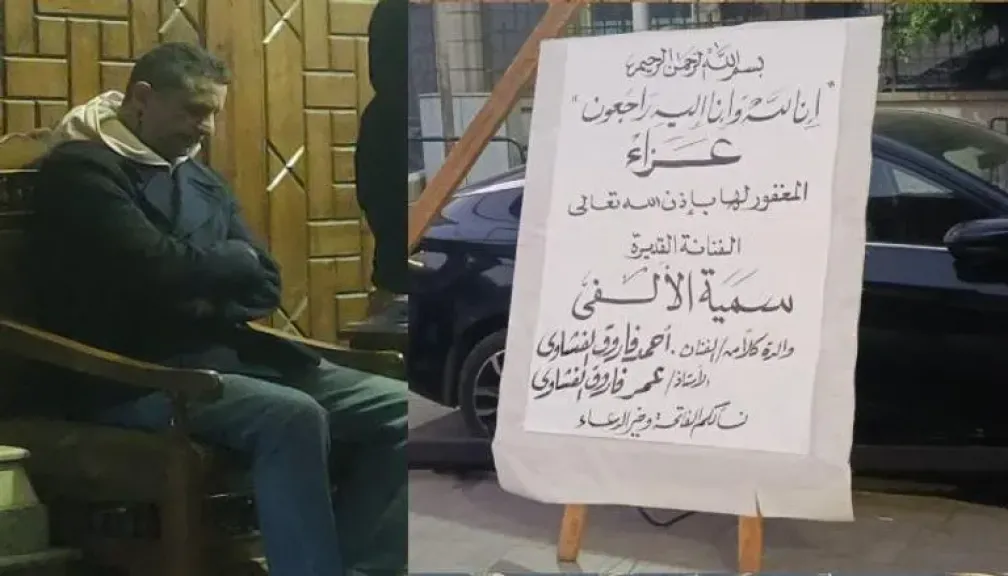 بسم الله الرحمن الرحيم
"إنا لله وإنا إليه راجعون"
عزاء
المغفور لها بإذن الله تعالى
الفنانة القديرة
سمية الألفى
والدة كلا من / الفنان . أحمد فاروق الفشاوى
الأستاذ / عمر فاروق الفشاوى
نسألكم الفاتحة وخير الدعاء